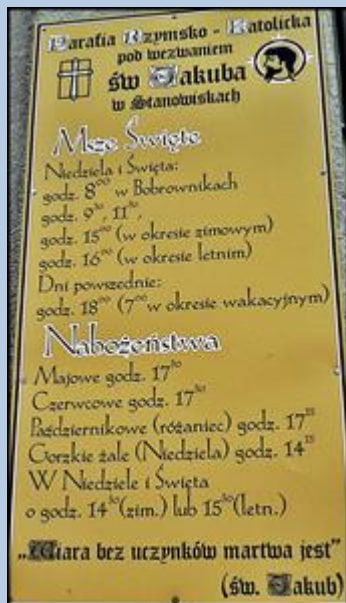 Parafia Rzymsko - Katolicka
pod wezwaniem
św Jakuba
w Stanowiskach
Msze Święte
Niedziela i Święta:
godz. 8⁰⁰ w Bobrownikach
godz. 9³⁰, 11³⁰,
godz. 15⁰⁰ (w okresie zimowym)
godz. 16⁰⁰ (w okresie letnim)
Dni powszednie:
godz. 18⁰⁰ (7⁰⁰ w okresie wakacyjnym)
Nabożeństwa
Majowe godz. 17³⁰
Czerwcowe godz. 17³⁰
Październikowe (różaniec) godz.
Gorzkie żale (Niedziela) godz.
W Niedziele i Święta
o godz. 14³⁰ (zim.) lub 15³⁰ (letn.)
„Wiara bez uczynków martwa jest”
(św. Jakub)